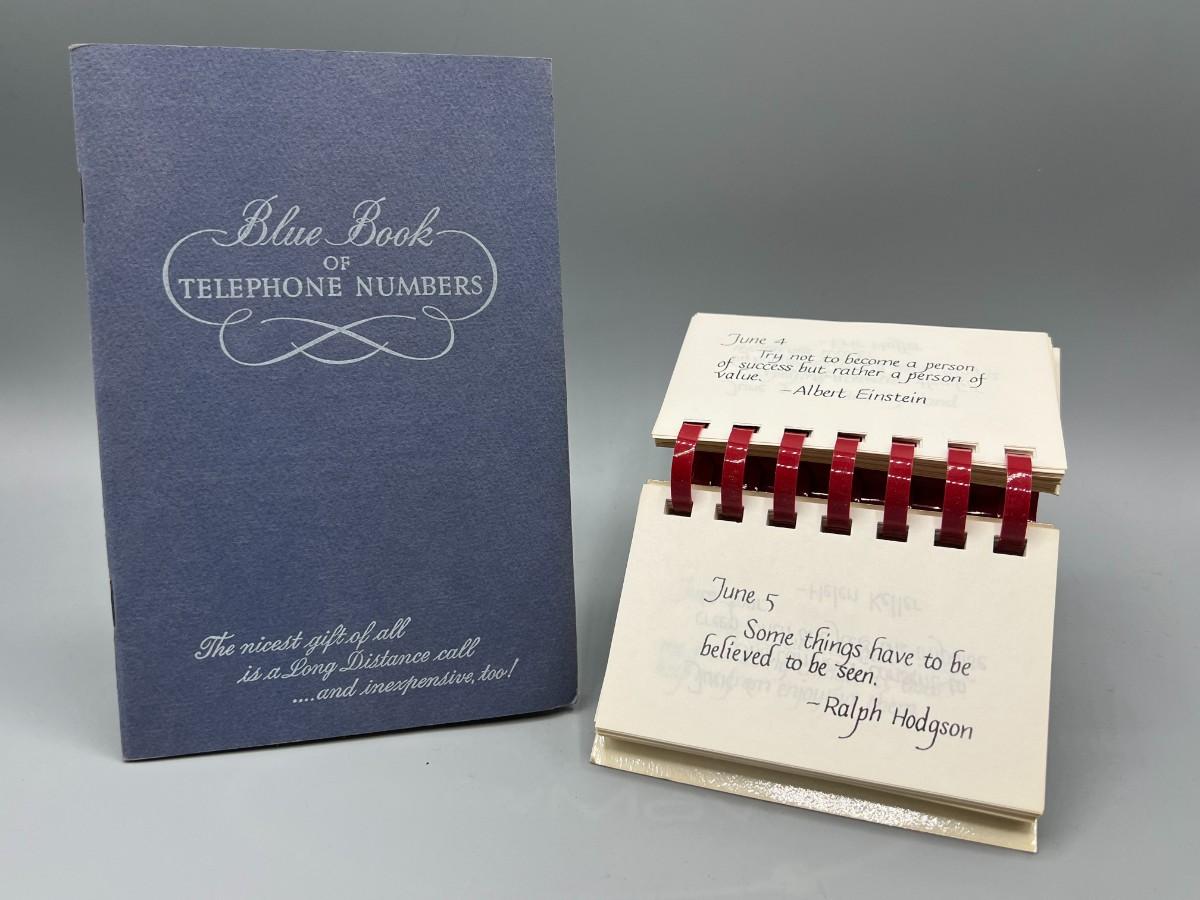 Blue Book
OF
TELEPHONE NUMBERS
The nicest gift of all
is a Long Distance call
....and inexpensive, too!
June 4
Try not to become a person
of success but rather a person of
value.
-Albert Einstein
June 5
Some things have to be
believed to be seen.
-Ralph Hodgson
-Helen Keller